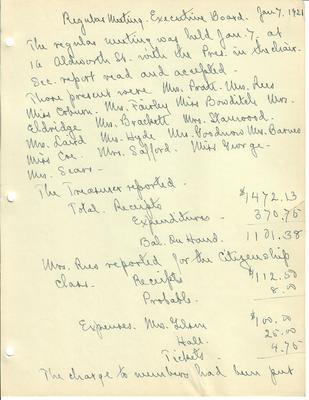 Regular Meeting. Executive Board. Jan 7, 1921
The regular meeting was held Jan 7. at
16 Aldworth St. with the Pres. in the chair.
Sec. report read and accepted.
Those present were Mrs. Pratt. Mrs. Rees
Miss Osborn. Mrs. Fairley Miss Bowditch Mrs.
Eldridge Mrs. Brackett Mrs. Stanwood.
Mrs. Laird Mrs. Hyde Mrs. Goodnow Mrs. Barnes
Miss Coe. Mrs. Safford. Miss George.
Ms. Sears.
The Treasurer reported.
Total Receipts $1472.13
Expenditures - 370.75
Bal. On Hand. 1101.38
Mrs. Rees reported for the Citizenship
Class. Receipts $112.50
Probable. 8.00
Expenses. Mrs. $100.00
Hall. 25.00
Tickets. 4.75
The charge to members had been put